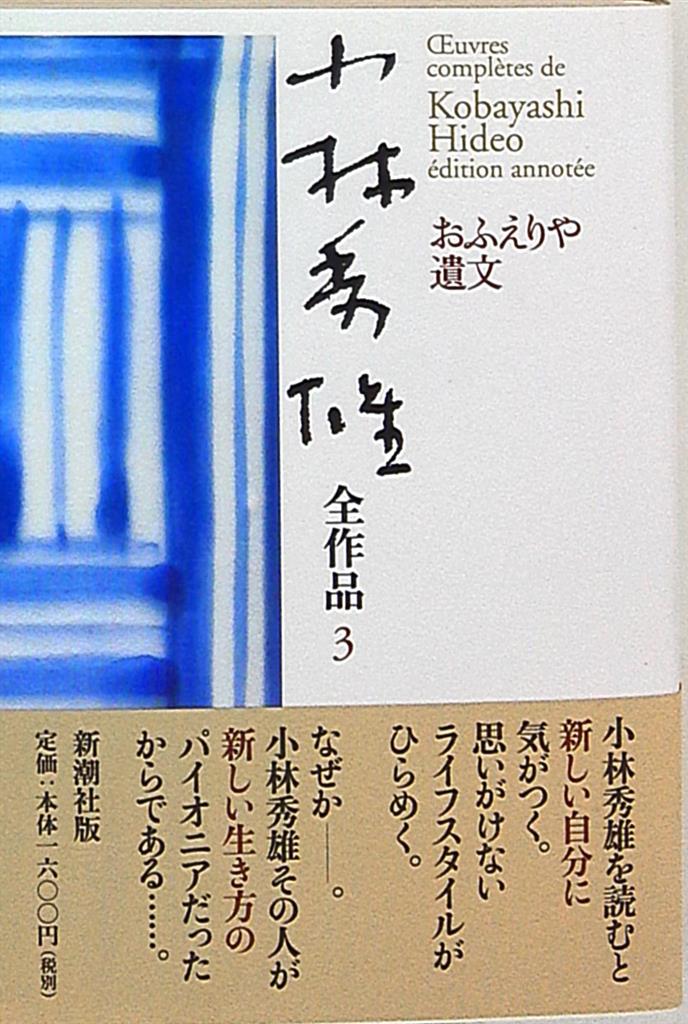 Œuvres
complètes de
Kobayashi
Hideo
édition annotée
おふえりや
遺文
小林秀雄
全作品 3
小林秀雄を読むと
新しい自分に
気がつく。
思いがけない
ライフスタイルが
ひらめく。
なぜか――。
小林秀雄その人が
新しい生き方の
パイオニアだった
からである……。
新潮社版
定価：本体一六〇〇円（税別）